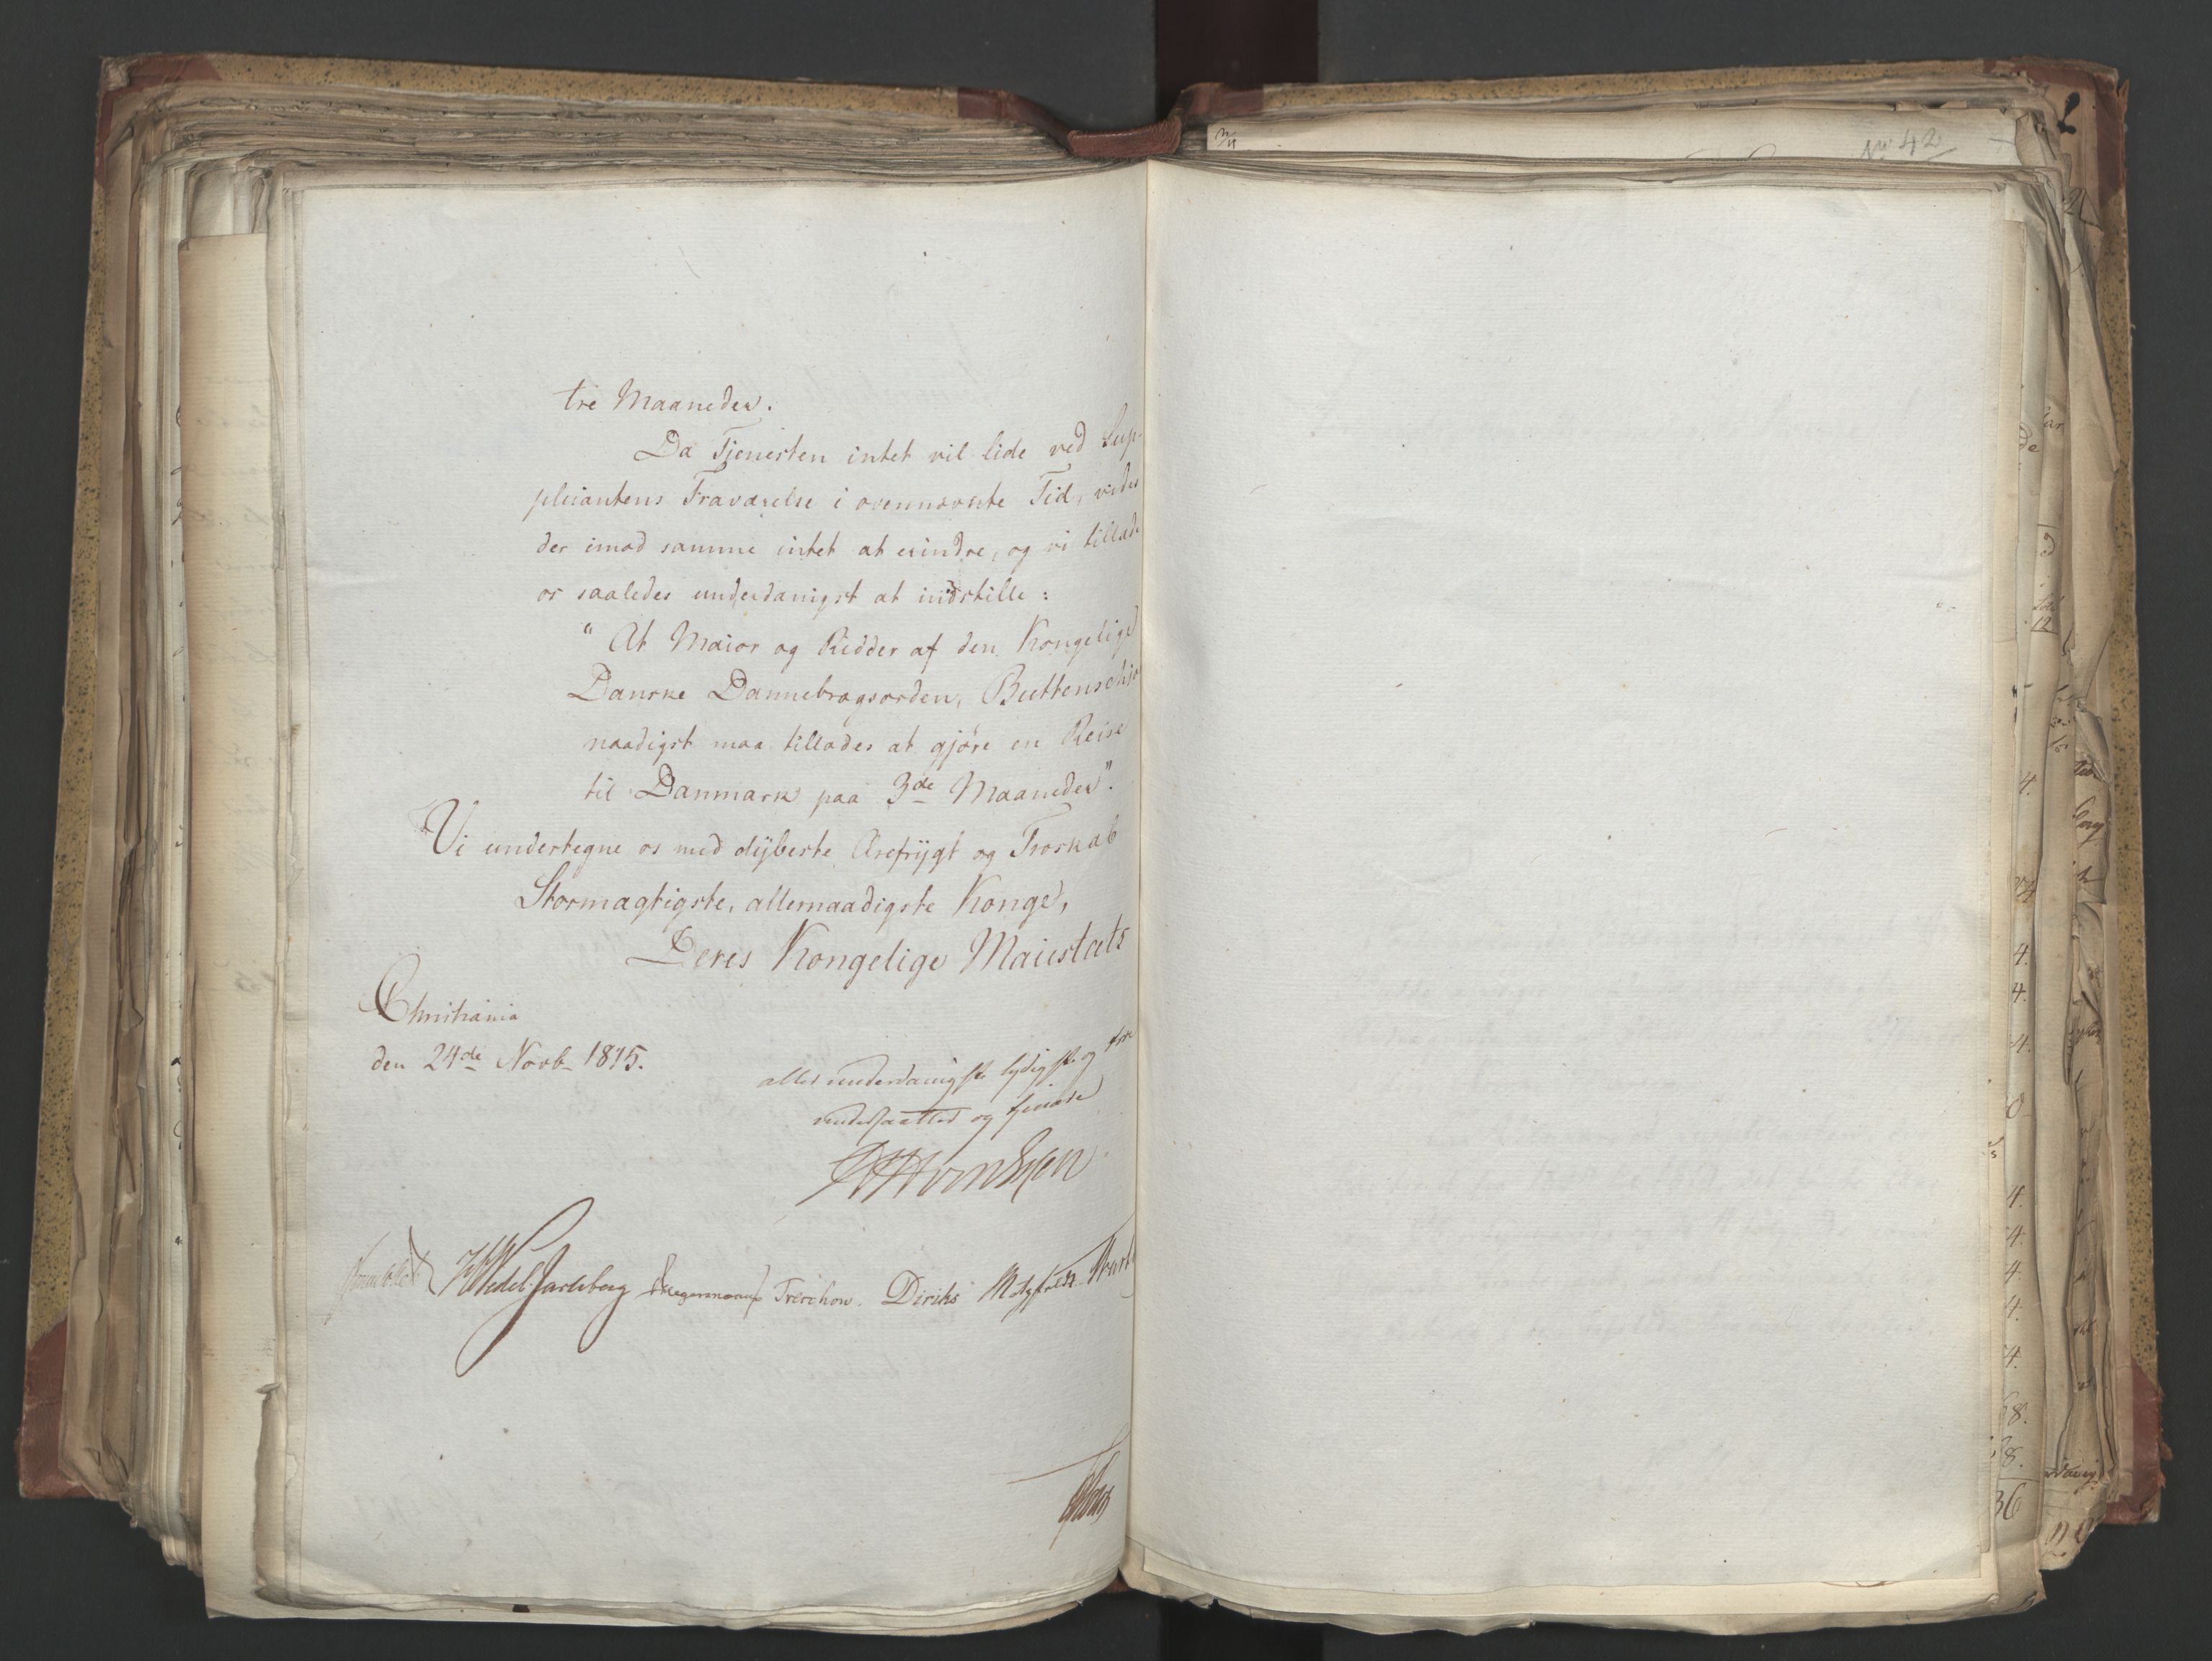 tre Maaneder.
Da Tjenesten intet vil lide ved Sup-
plicantens Fraværelse i ovennævnte Tid, vides
der imod samme intet at erindre, og vi tillade
os saaledes underdanigst at indstille:
"At Maior og Ridder af den Kongelige
Danske Dannebrogsorden, Buttenschiø
naadigst maa tillades at gjøre en Reise
til Danmark paa 3de Maaneder".
Vi undertegne os med dÿbeste Ærefrÿgt og Troskab
Stormægtigste, allernaadigste Konge,
Deres Kongelige Maiestæts
Christiania
den 24de Novbr 1815.
allerunderdanigste lydigste og troe
undersaatter og tjenere
Sommerhielm HWedel Jarlsberg Hegermann Treschow. Diriks Motzfeldt
No 42